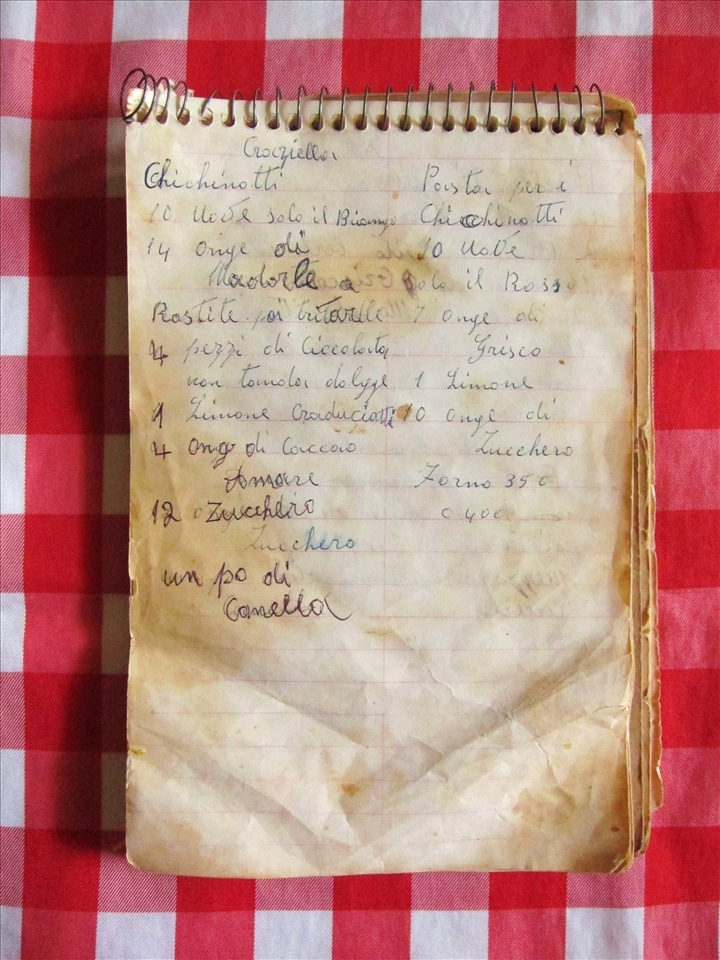 Graziella
Chichinotti
10 Uove solo il Biango
14 onge di
Madorle a
Rostite poi tritarlle
4 pezzi di Cioccolata
non tamda dolgge
1 Limone Graduciatti
4 ong di Caccao
Amare
12 Zucchero
Zucchero
un po di
Canella
Pasta per i
Chicchinotti
10 Uove
solo il Rosso
7 onge di
Grisco
1 Limone
10 onge di
Zucchero
Forno 350
o 400